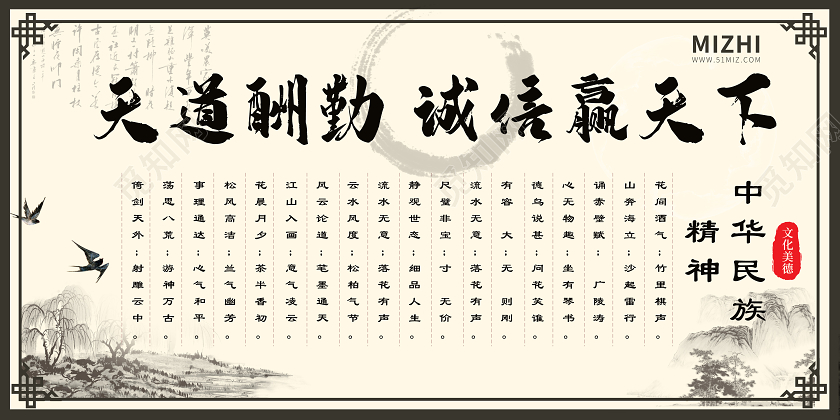 MIZHI
WWW.51MIZ.COM
天道酬勤 诚信赢天下
中华民族
精神
文化美德
花间酒气；竹里棋声。
山奔海立；沙起雷行。
诵赤壁赋； 广陵涛。
心无物趣；坐有琴书。
德鸟说甚；问花笑谁。
有容 大；无 则刚。
流水无意；落花有声。
尺璧非宝；寸 无价。
静观世态；细品人生。
流水无意；落花有声。
云水风度；松柏气节。
风云论道；笔墨通天。
江山入画；意气凌云。
花晨月夕；茶半香初。
松风高洁；兰气幽芳。
事理通达；心气和平。
荡思八荒；游神万古。
倚剑天外；射雕云中。